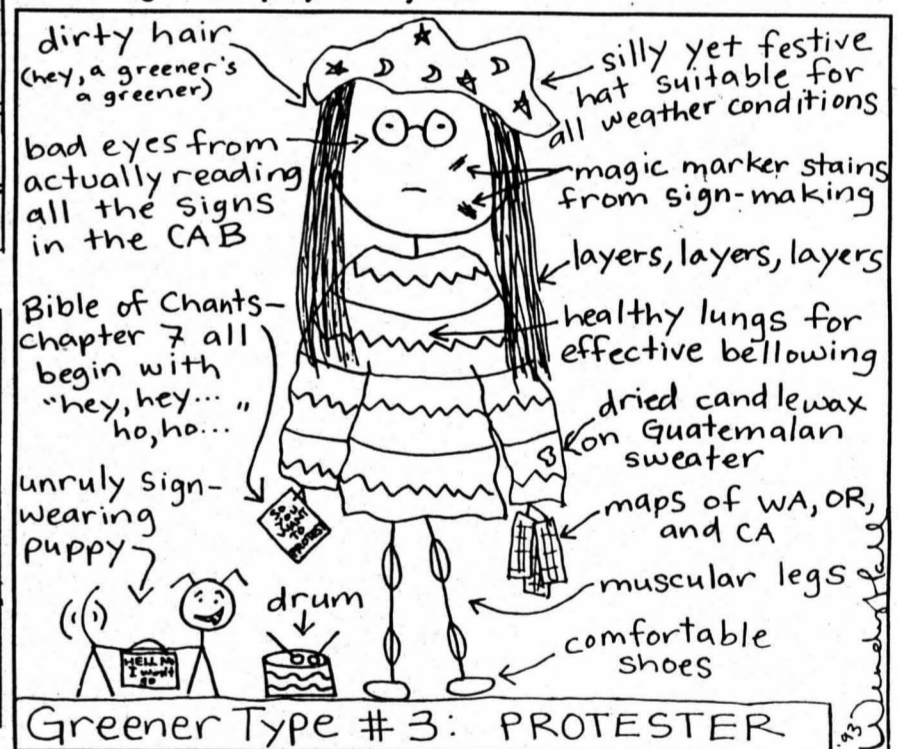 dirty hair
(hey, a greener's
a greener)
bad eyes from
actually reading
all the signs
in the CAB
Bible of Chants-
chapter 7 all
begin with
"hey, hey...
ho, ho..."
unruly sign-
wearing
puppy
HELL NO
I won't
go
drum
SO
YOU
WANT
TO
PROTEST
silly yet festive
hat suitable for
all weather conditions
magic marker stains
from sign-making
layers, layers, layers
healthy lungs for
effective bellowing
dried candlewax
on Guatemalan
sweater
maps of WA, OR,
and CA
muscular legs
comfortable
shoes
Greener Type #3: PROTESTER
'93